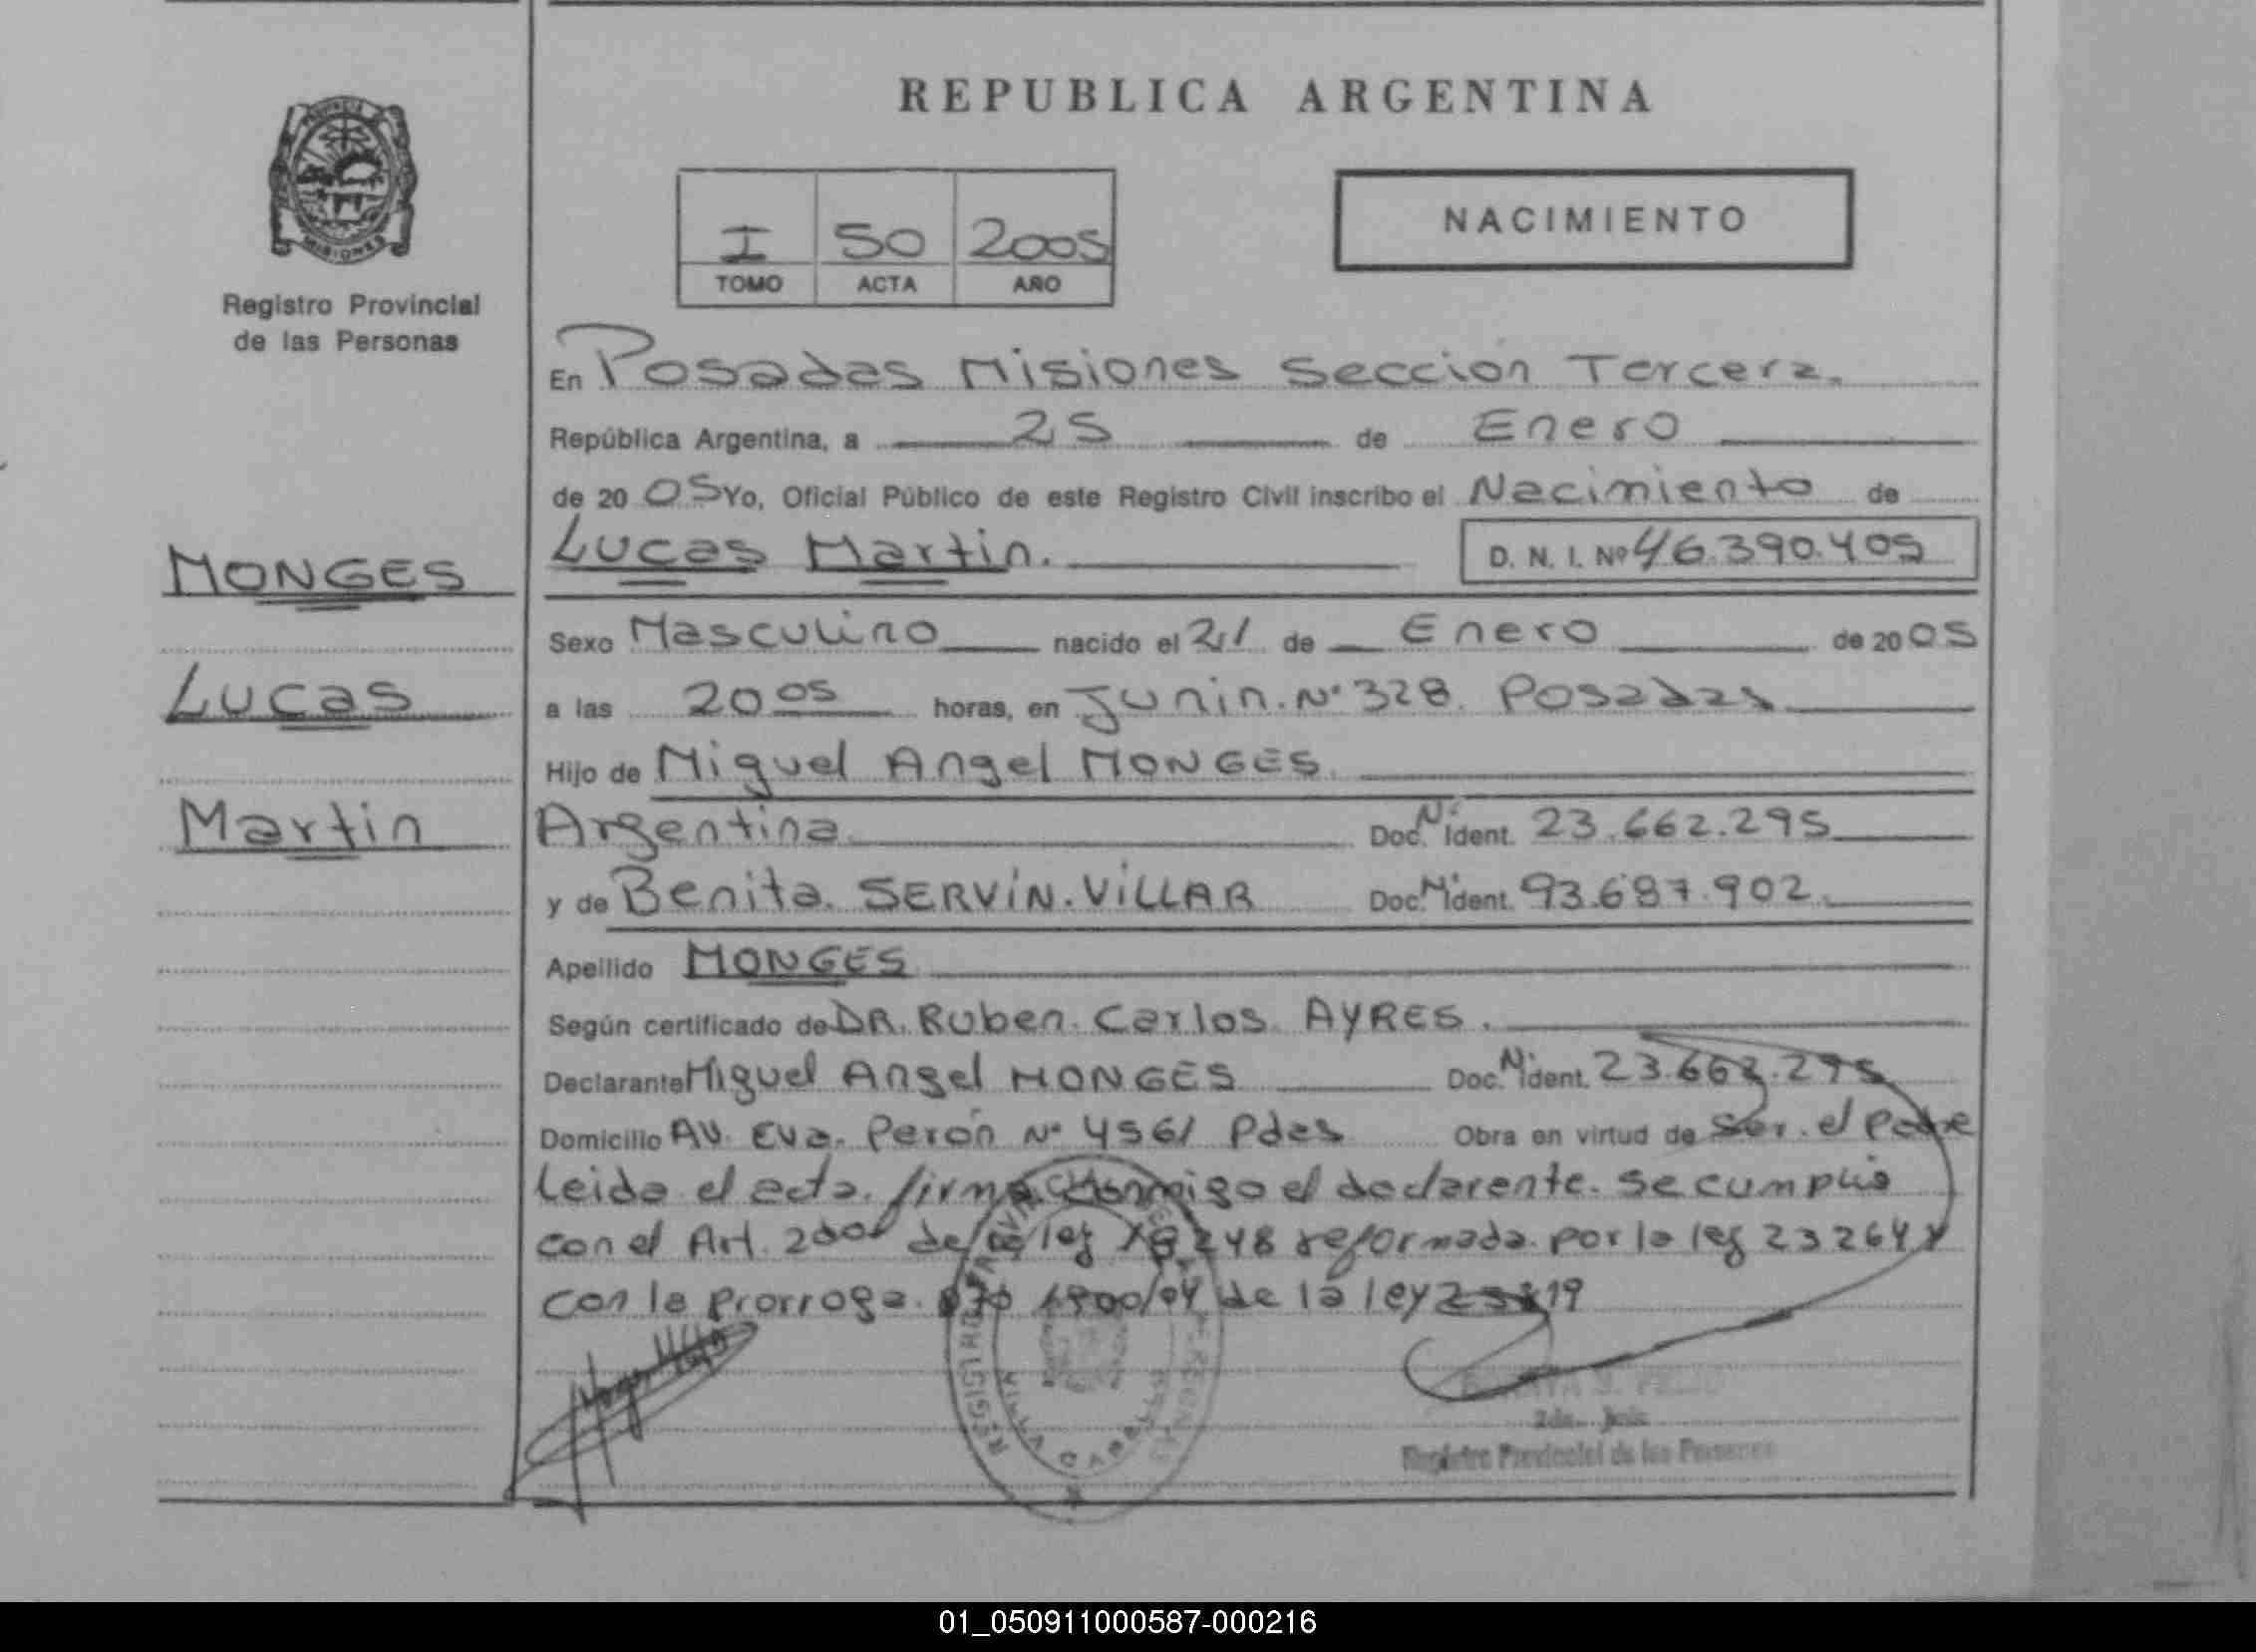 REPUBLICA ARGENTINA
PROVINCIA
MISIONES
Registro Provincial
de las Personas
I 50 2005
TOMO ACTA AÑO
NACIMIENTO
En Posadas Misiones Sección Tercera.
República Argentina, a 25 de Enero
de 2005 Yo, Oficial Público de este Registro Civil inscribo el Nacimiento de
Lucas Martin.
D. N. I. Nº 46.390.405
MONGES
Lucas
Martin
Sexo Masculino nacido el 21 de Enero de 2005
a las 20 05 horas, en Junin. Nº 328. Posadas
Hijo de Miguel Angel MONGES.
Argentina Doc. Nº Ident. 23.662.295
y de Benita. SERVIN. VILLAR Doc. Nº Ident. 93.687.902.
Apellido MONGES
Según certificado de DR. Ruben. Carlos AYRES.
Declarante Miguel Angel MONGES Doc. Nº Ident. 23.662.295
Domicilio AV. Eva. Perón Nº 4561 Pdas Obra en virtud de Ser. el Padre
Leida el acta. firma conmigo el declarante. se cumplio
con el Art. de la ley 18248 reformada por la ley 23264 y
con la prorroga. de la ley
2da. Jefe
Registro Provincial de las Personas
01_050911000587-000216